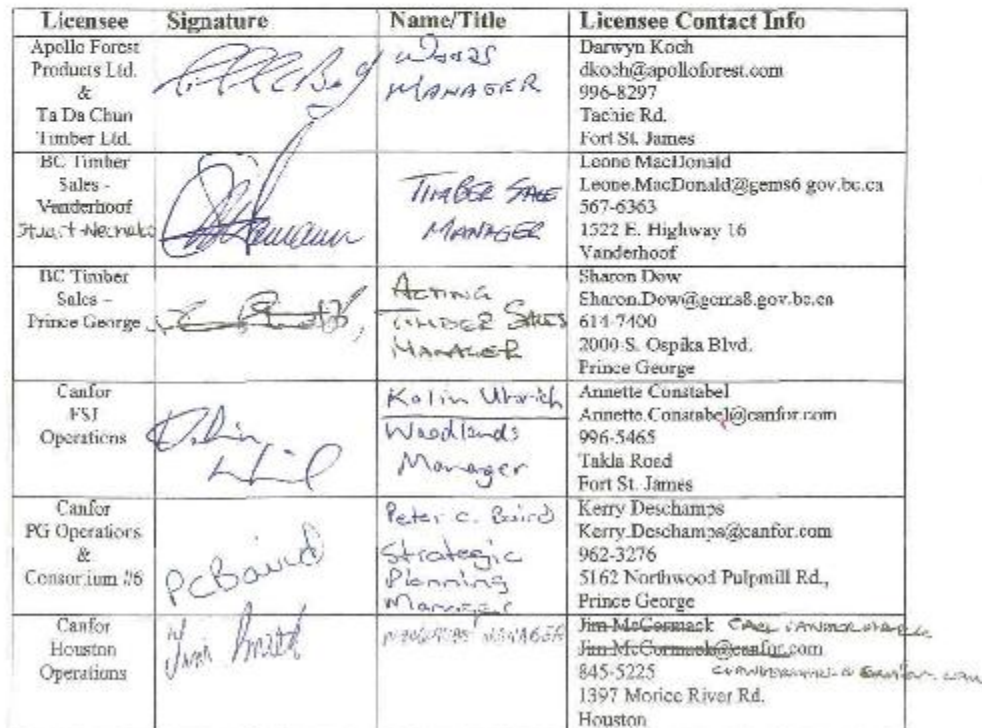 Licensee Signature Name/Title Licensee Contact Info
Apollo Forest
Products Ltd.
&
Ta Da Chun
Timber Ltd.
MANAGER
Darwyn Koch
dkoch@apolloforest.com
996-8297
Tachie Rd.
Fort St. James
BC Timber
Sales -
Vanderhoof
Stuart-Nechako
TIMBER SALE
MANAGER
Leone MacDonald
Leone.MacDonald@gems6.gov.bc.ca
567-6363
1522 E. Highway 16
Vanderhoof
BC Timber
Sales –
Prince George
ACTING
TIMBER SALES
MANAGER
Sharon Dow
Sharon.Dow@gems8.gov.bc.ca
614-7400
2000 S. Ospika Blvd.
Prince George
Canfor
FSJ
Operations
Kalin Uhrich
Woodlands
Manager
Annette Constabel
Annette.Constabel@canfor.com
996-5465
Takla Road
Fort St. James
Canfor
PG Operations
&
Consortium #6
PCBaird
Peter C. Baird
Strategic
Planning
Manager
Kerry Deschamps
Kerry.Deschamps@canfor.com
962-3276
5162 Northwood Pulpmill Rd.,
Prince George
Canfor
Houston
Operations
Jim Smith
MANAGER
Jim McCormack
Jim.McCormack@canfor.com
845-5225
1397 Morice River Rd.
Houston